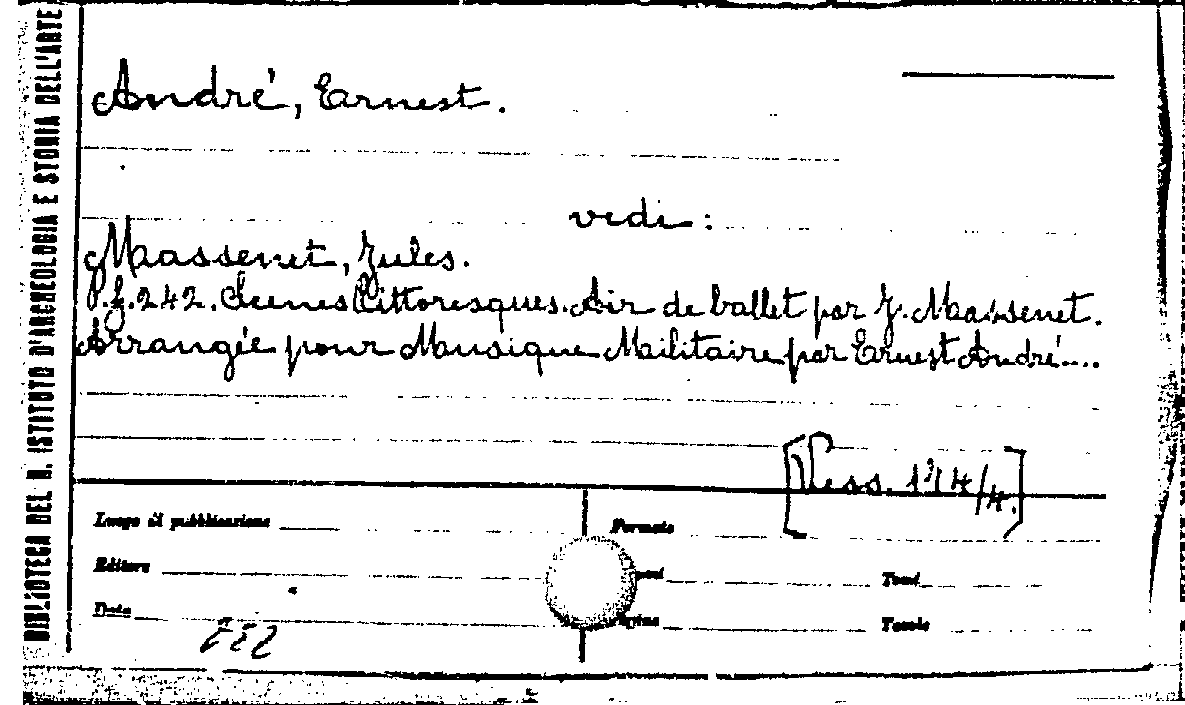 BIBLIOTECA DEL R. ISTITUTO D'ARCHEOLOGIA E STORIA DELL'ARTE
André, Ernest.
vedi:
Massenet, Jules.
P.J.242. Scenes Pittoresques. Air de ballet par J. Massenet.
Arrangée pour Musique Militaire par Ernest André....
[Vess. 174/4.]
Luogo di pubblicazione
Formato
Editore
Tomi
Data
Tavole